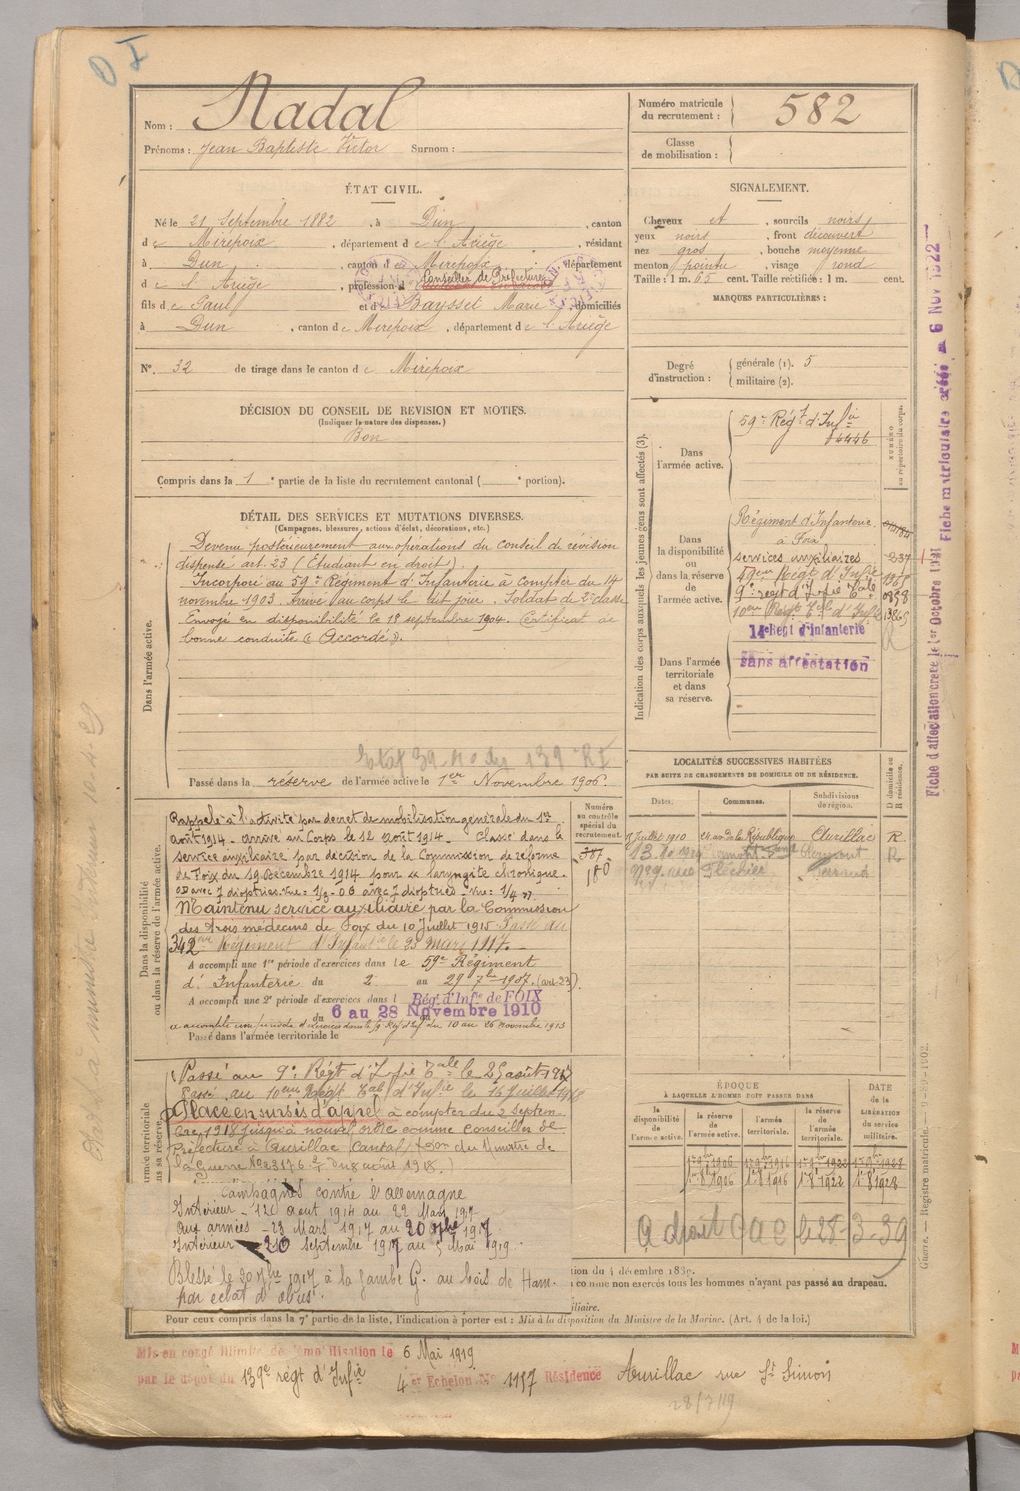 Nom : Nadal
Prénoms : Jean Baptiste Victor Surnom :
Numéro matricule du recrutement : 582
Classe de mobilisation :
ÉTAT CIVIL.
Né le 21 Septembre 1882, à Dun, canton
de Mirepoix, département de l'Ariège, résidant
à Dun, canton de Mirepoix, département
de l'Ariège, profession d Conseiller de Préfecture
fils de Paul et de Baysset Marie, domiciliés
à Dun, canton de Mirepoix, département de l'Ariège
N° 32 de tirage dans le canton de Mirepoix
SIGNALEMENT.
Cheveux et, sourcils noirs
yeux noirs, front découvert
nez gros, bouche moyenne
menton pointu, visage rond
Taille : 1 m. 65 cent. Taille rectifiée : 1 m. cent.
MARQUES PARTICULIÈRES :
Degré d'instruction : générale (1). 5
militaire (2).
DÉCISION DU CONSEIL DE REVISION ET MOTIFS.
(Indiquer la nature des dispenses.)
Bon
Compris dans la 1e partie de la liste du recrutement cantonal ( e portion).
DÉTAIL DES SERVICES ET MUTATIONS DIVERSES.
(Campagnes, blessures, actions d'éclat, décorations, etc.)
Dans l'armée active.
Devenu postérieurement aux opérations du conseil de révision
dispensé art. 23 (Étudiant en droit).
Incorporé au 59e Régiment d'Infanterie à compter du 14
novembre 1903. Arrivé au corps le dit jour. Soldat de 2e classe
Envoyé en disponibilité le 18 septembre 1904. Certificat de
bonne conduite « Accordé ».
139e RI
Passé dans la réserve de l'armée active le 1er Novembre 1906.
Indication des corps auxquels les jeunes gens sont affectés (3).
Dans l'armée active.
59e Régt d'Infie
NUMÉRO au répertoire du corps.
Dans la disponibilité ou dans la réserve de l'armée active.
Régiment d'Infanterie
à Foix
services auxiliaires 237
49em Régt d'Infie
9e régt d'Infie Tale
10em Régt Tal d'Infie
14e Régt d'Infanterie
Dans l'armée territoriale et dans sa réserve.
sans affectation
Fiche d'affectation créée le 1er Octobre
Fiche matriculaire créée 6 Nov 1922
LOCALITÉS SUCCESSIVES HABITÉES
PAR SUITE DE CHANGEMENTS DE DOMICILE OU DE RÉSIDENCE.
Dates. Communes. Subdivisions de région. D domicile ou R résidence.
Juillet 1910 av de la République Aurillac R
Dans la disponibilité ou dans la réserve de l'armée active.
Numéro au contrôle spécial du recrutement.
387
180
Rappelé à l'activité par décret de mobilisation générale du 1er
août 1914 - arrivé au Corps le 12 août 1914 - Classé dans le
service auxiliaire par décision de la Commission de réforme
de Foix du 19 décembre 1914 pour laryngite chronique.
Maintenu service auxiliaire par la Commission
des trois médecins de Foix du 10 Juillet 1915 Passé au
342eme Régiment d'Infanterie le 22 mars 1917
A accompli une 1re période d'exercices dans le 59e Régiment
d'Infanterie du 2 au 29 7bre 1907. (art. 23).
A accompli une 2e période d'exercices dans l Rég. d'Infie de FOIX
du 6 au 28 Novembre 1910
a accompli une période d'exercices dans le 9e Régt d'Inf. du 10 au 26 novembre 1913
Passé dans l'armée territoriale le
Passé au 9e Régt d'Infie Tale le 25 août 1917
Passé au 10em Régt Tal d'Infie le 16 Juillet 1918
Placé en sursis d'appel à compter du 2 Septem-
bre 1918 jusqu'à nouvel ordre comme conseiller de
Préfecture à Aurillac (Cantal) du Ministre de
la Guerre du 8 août 1918.)
Campagnes contre l'Allemagne
Intérieur - 12 août 1914 au 22 Mars 1917
aux armées - 23 Mars 1917 au 20 7bre 1917
Intérieur - septembre 1917 au 5 Mai 1919.
Blessé le 20 7bre 1917 à la jambe G. au bois de Ham.
par éclat d'obus.
ÉPOQUE
À LAQUELLE L'HOMME DOIT PASSER DANS
DATE de la LIBÉRATION du service militaire.
la disponibilité de l'armée active. la réserve de l'armée active. l'armée territoriale. la réserve de l'armée territoriale.
1er 8bre 1906 1er 8bre 1916 1er 8bre 1922 1er 8bre 1928
ion du 4 décembre 1889.
comme non exercés tous les hommes n'ayant pas passé au drapeau.
iliaire.
Pour ceux compris dans la 7e partie de la liste, l'indication à porter est : Mis à la disposition du Ministre de la Marine. (Art. 4 de la loi.)
Guerre. — Registre matricule.
Mis en congé illimité de démobilisation le 6 Mai 1919
par le dépôt du 139e régt d'Infie 4 Échelon N° 1157 Résidence Aurillac rue St Simon
28/7/19